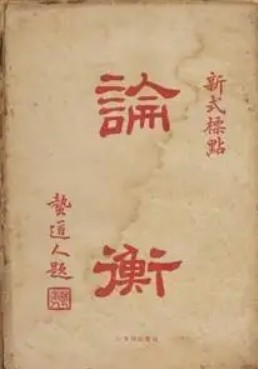 新式標點
論衡
蟄道人題